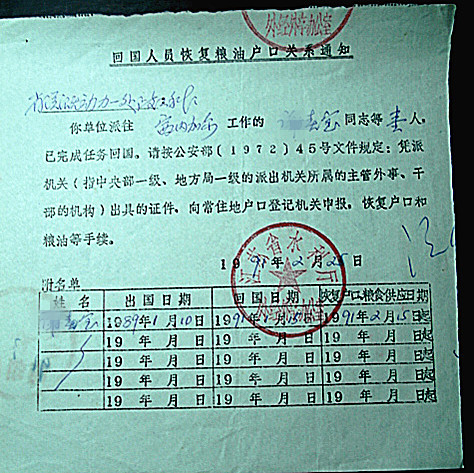 外经外事办公室
回国人员恢复粮油户口关系通知
你单位派往 塞内加尔 工作的 春 同志等 壹 人,
已完成任务回国。请按公安部(1972)45号文件规定:凭派
机关(指中央部一级、地方局一级的派出机关所属的主管外事、干
部的机构)出具的证件,向常住地户口登记机关申报,恢复户口和
粮油等手续。
省水 厅
19 91年2月25日
附名单
姓 名 出国日期 回国日期 恢复户口粮食供应日期
春 1989年1月10日 1991年 月 日 1991年2月15日起
19 年 月 日 19 年 月 日 19 年 月 日起
19 年 月 日 19 年 月 日 19 年 月 日起
19 年 月 日 19 年 月 日 19 年 月 日起
19 年 月 日 19 年 月 日 19 年 月 日起